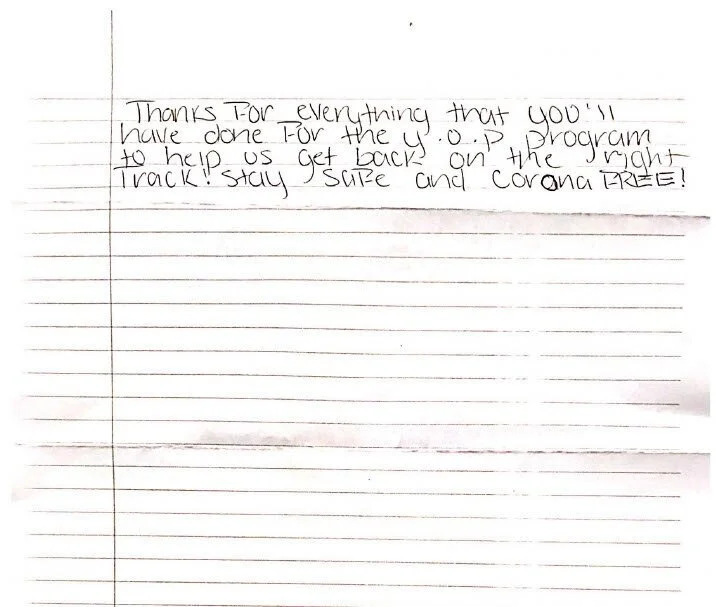 Thanks For everything that you'll
have done For the y.o.p program
to help us get back on the right
Track! stay safe and corona FREE!